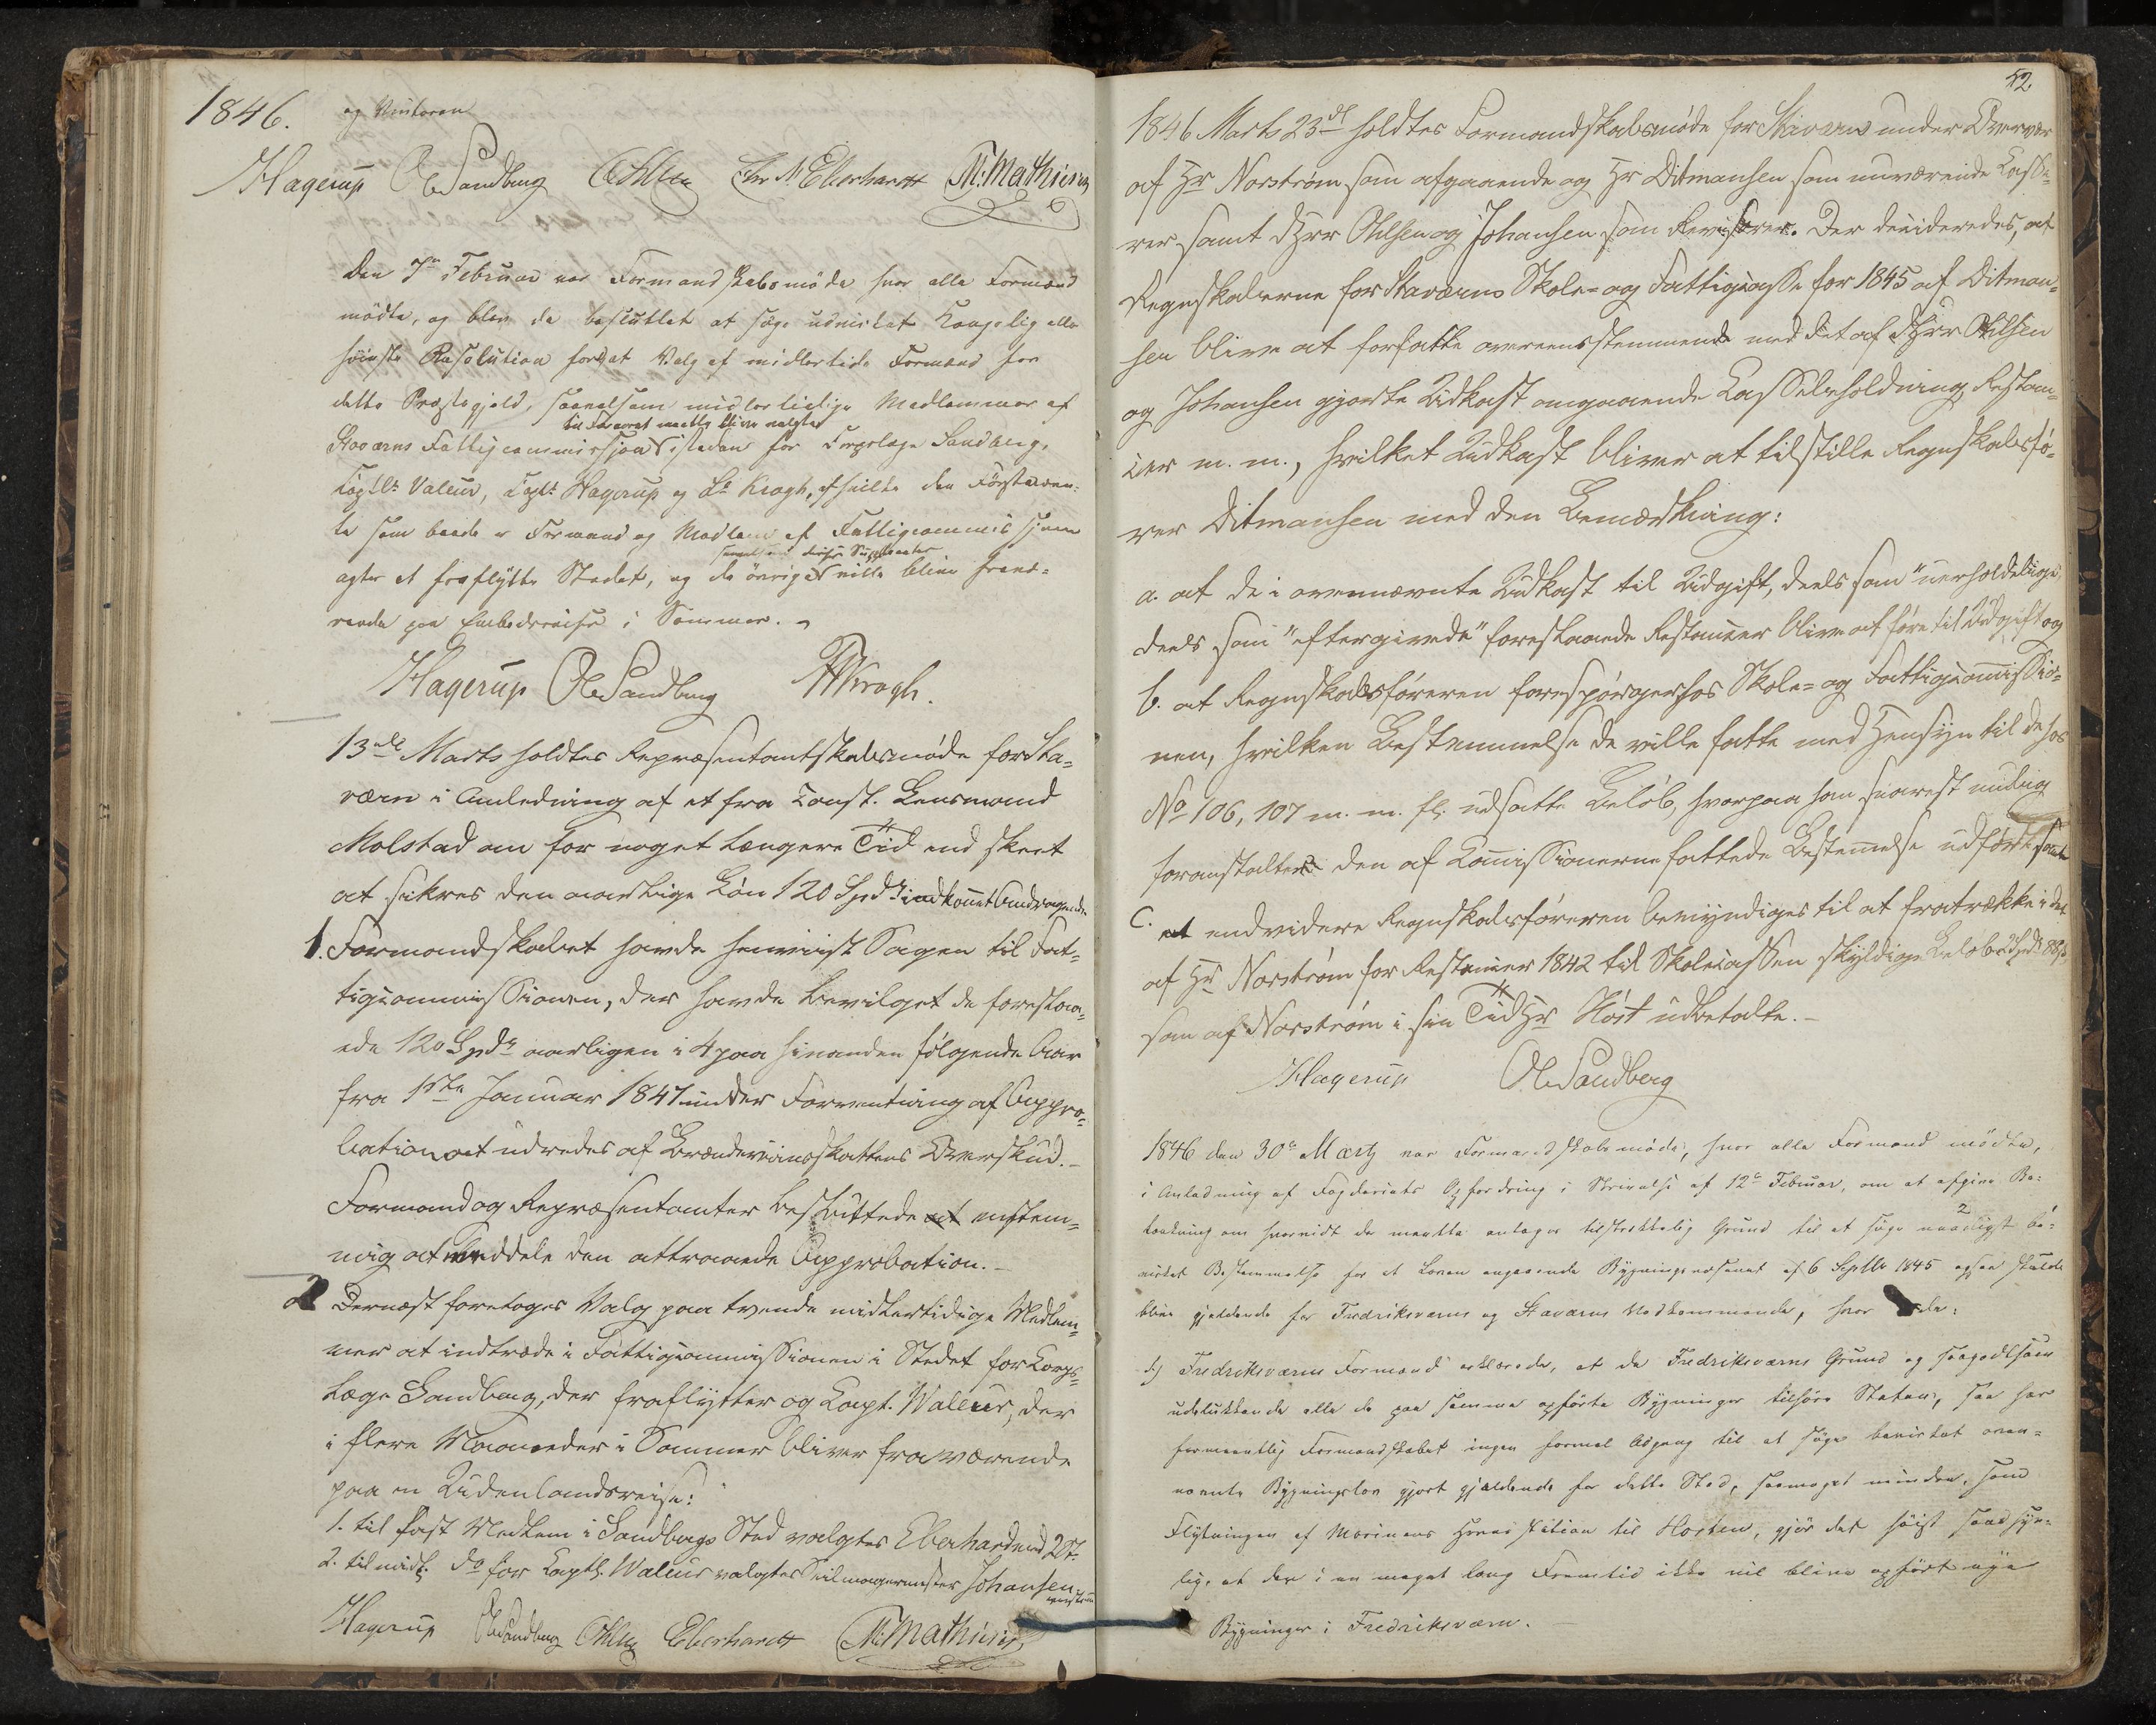 1846.
og Revisoren
Hagerup Ol Sandberg Ohlsen Chr N. Eberhardt M: Mathiesen
Den 7de Februar var Formandskabsmøde hvor alle Formænd
mødte, og blev da besluttet at søge udvirket Kongelig eller
høieste Resolution for at Valg af midlertidige Formænd for
dette Præstegjeld, saavelsom midlertidige Medlemmer af
til Foraaret maatte blive valgte
Staværns Fattigcommission istedenfor Corpslæge Sandberg,
Captlt Valeur, Captlt Hagerup og Lt Krogh, af hvilke den Førstnævn-
te som baade er Formand og Medlem af Fattigcommissionen
saavelsom deres Suppleanter
agter at fraflytte Stedet, og de øvrige ville blive fravæ-
rende paa Embedsreise i Sommer.
Hagerup Ol Sandberg Krogh.
13de Marts holdtes Repræsentantskabsmøde for Sta-
værn i Anledning af et fra Const. Lensmand
Molstad om for noget længere Tid end skeet
at sikres den aarlige Løn 120 Spd indkommet Andragende
1. Formandskabet havde henviist Sagen til Fat-
tigcommissionen, der havde bevilget de foreslaa-
ede 120 Spd aarligen i 4 paa hinanden følgende Aar
fra 1ste Januar 1847 under Forventning af Appro-
bation at udredes af Brændeviinsskattens Overskud.-
Formænd og Repræsentanter besluttede at enstem-
mig at meddele den attraaede Approbation.-
2 Dernæst foretoges Valg paa tvende midlertidige Medlem-
mer at indtræde i Fattigcommissionen i Stedet for Corps-
læge Sandberg, der fraflytter og Capt. Valeur, der
i flere Maaneder i Sommer bliver fraværende
paa en Udenlandsreise:
1. til fast Medlem i Sandbergs Sted valgtes Eberhardt med 2 St.
2. til midl. do for Captl. Valeur valgtes Seilmagermester Johansen
Hagerup Ol Sandberg Ohlsen Eberhardt M: Mathiesen
52
1846 Marts 23de holdtes Formandskabsmøde for Staværn under Overvær
af Hr Norstrøm som afgaaende og Hr Ditmansen som nuværende Casse-
rer samt dHrr Ohlsen og Johansen som Revisorer. Der decideredes, at
Regnskaberne for Staværns Skole- og Fattigcasse for 1845 af Ditman-
sen bliver at forfatte overeensstemmende med det af dHrr Ohlsen
og Johansen gjorte Udkast angaaende Cassebeholdning, Restan-
cer m. m., hvilket Udkast bliver at tilstille Regnskabsfø-
rer Ditmansen med den Bemærkning:
a. at de i ovennævnte Udkast til Udgift, deels som "uerholdelige,
deels som "eftergivede" foreslaaede Restancer bliver at føre til Udgift og
b. at Regnskabsføreren forespørger hos Skole- og Fattigcommissio-
nen, hvilken Bestemmelse de ville fatte med Hensyn til de hos
No 106, 107 m. m. fl. udsatte Beløb, hvorpaa han snarest muelig
foranstalter den af Commissionerne fattede Bestemmelse udført samt
c. at endvidere Regnskabsføreren bemyndiges til at fratrække i det
af Hr Norstrøm for Restancer 1842 til Skolecassen skyldige Beløb
som af Norstrøm i sin Tid Hr Høst udbetalte.-
Hagerup Ol Sandberg
1846 den 30te Martz var Formandskabsmøde, hvor alle Formænd mødte,
i Anledning af Fogderiets Opfordring i Skrivelse af 12te Februar, om at afgive Be-
tænkning om hvorvidt der maatte antages tilstrækkelig Grund til at søge naadigst be-
2
virket Bestemmelse for at Loven angaaende Bygningsvæsenet af 6 Septbr 1845 ogsaa skulde
blive gjeldende for Fredriksværns og Staværns Vedkommende, hvor de:
1) Fredriksværns Formænd erklærede, at da Fredriksværns Grund og saagodtsom
udelukkende alle de paa samme opførte Bygninger tilhøre Staten, saa har
formeentlig Formandskabet ingen formel Adgang til at søge bevirket oven-
nævnte Bygningslov gjort gjældende for dette Sted, saameget mindre, som
Flytningen af Marinens Hovedstation til Horten, gjør det høist sandsyn-
lig, at der i en meget lang Fremtid ikke vil blive opført nye
Bygninger i Fredriksværn.